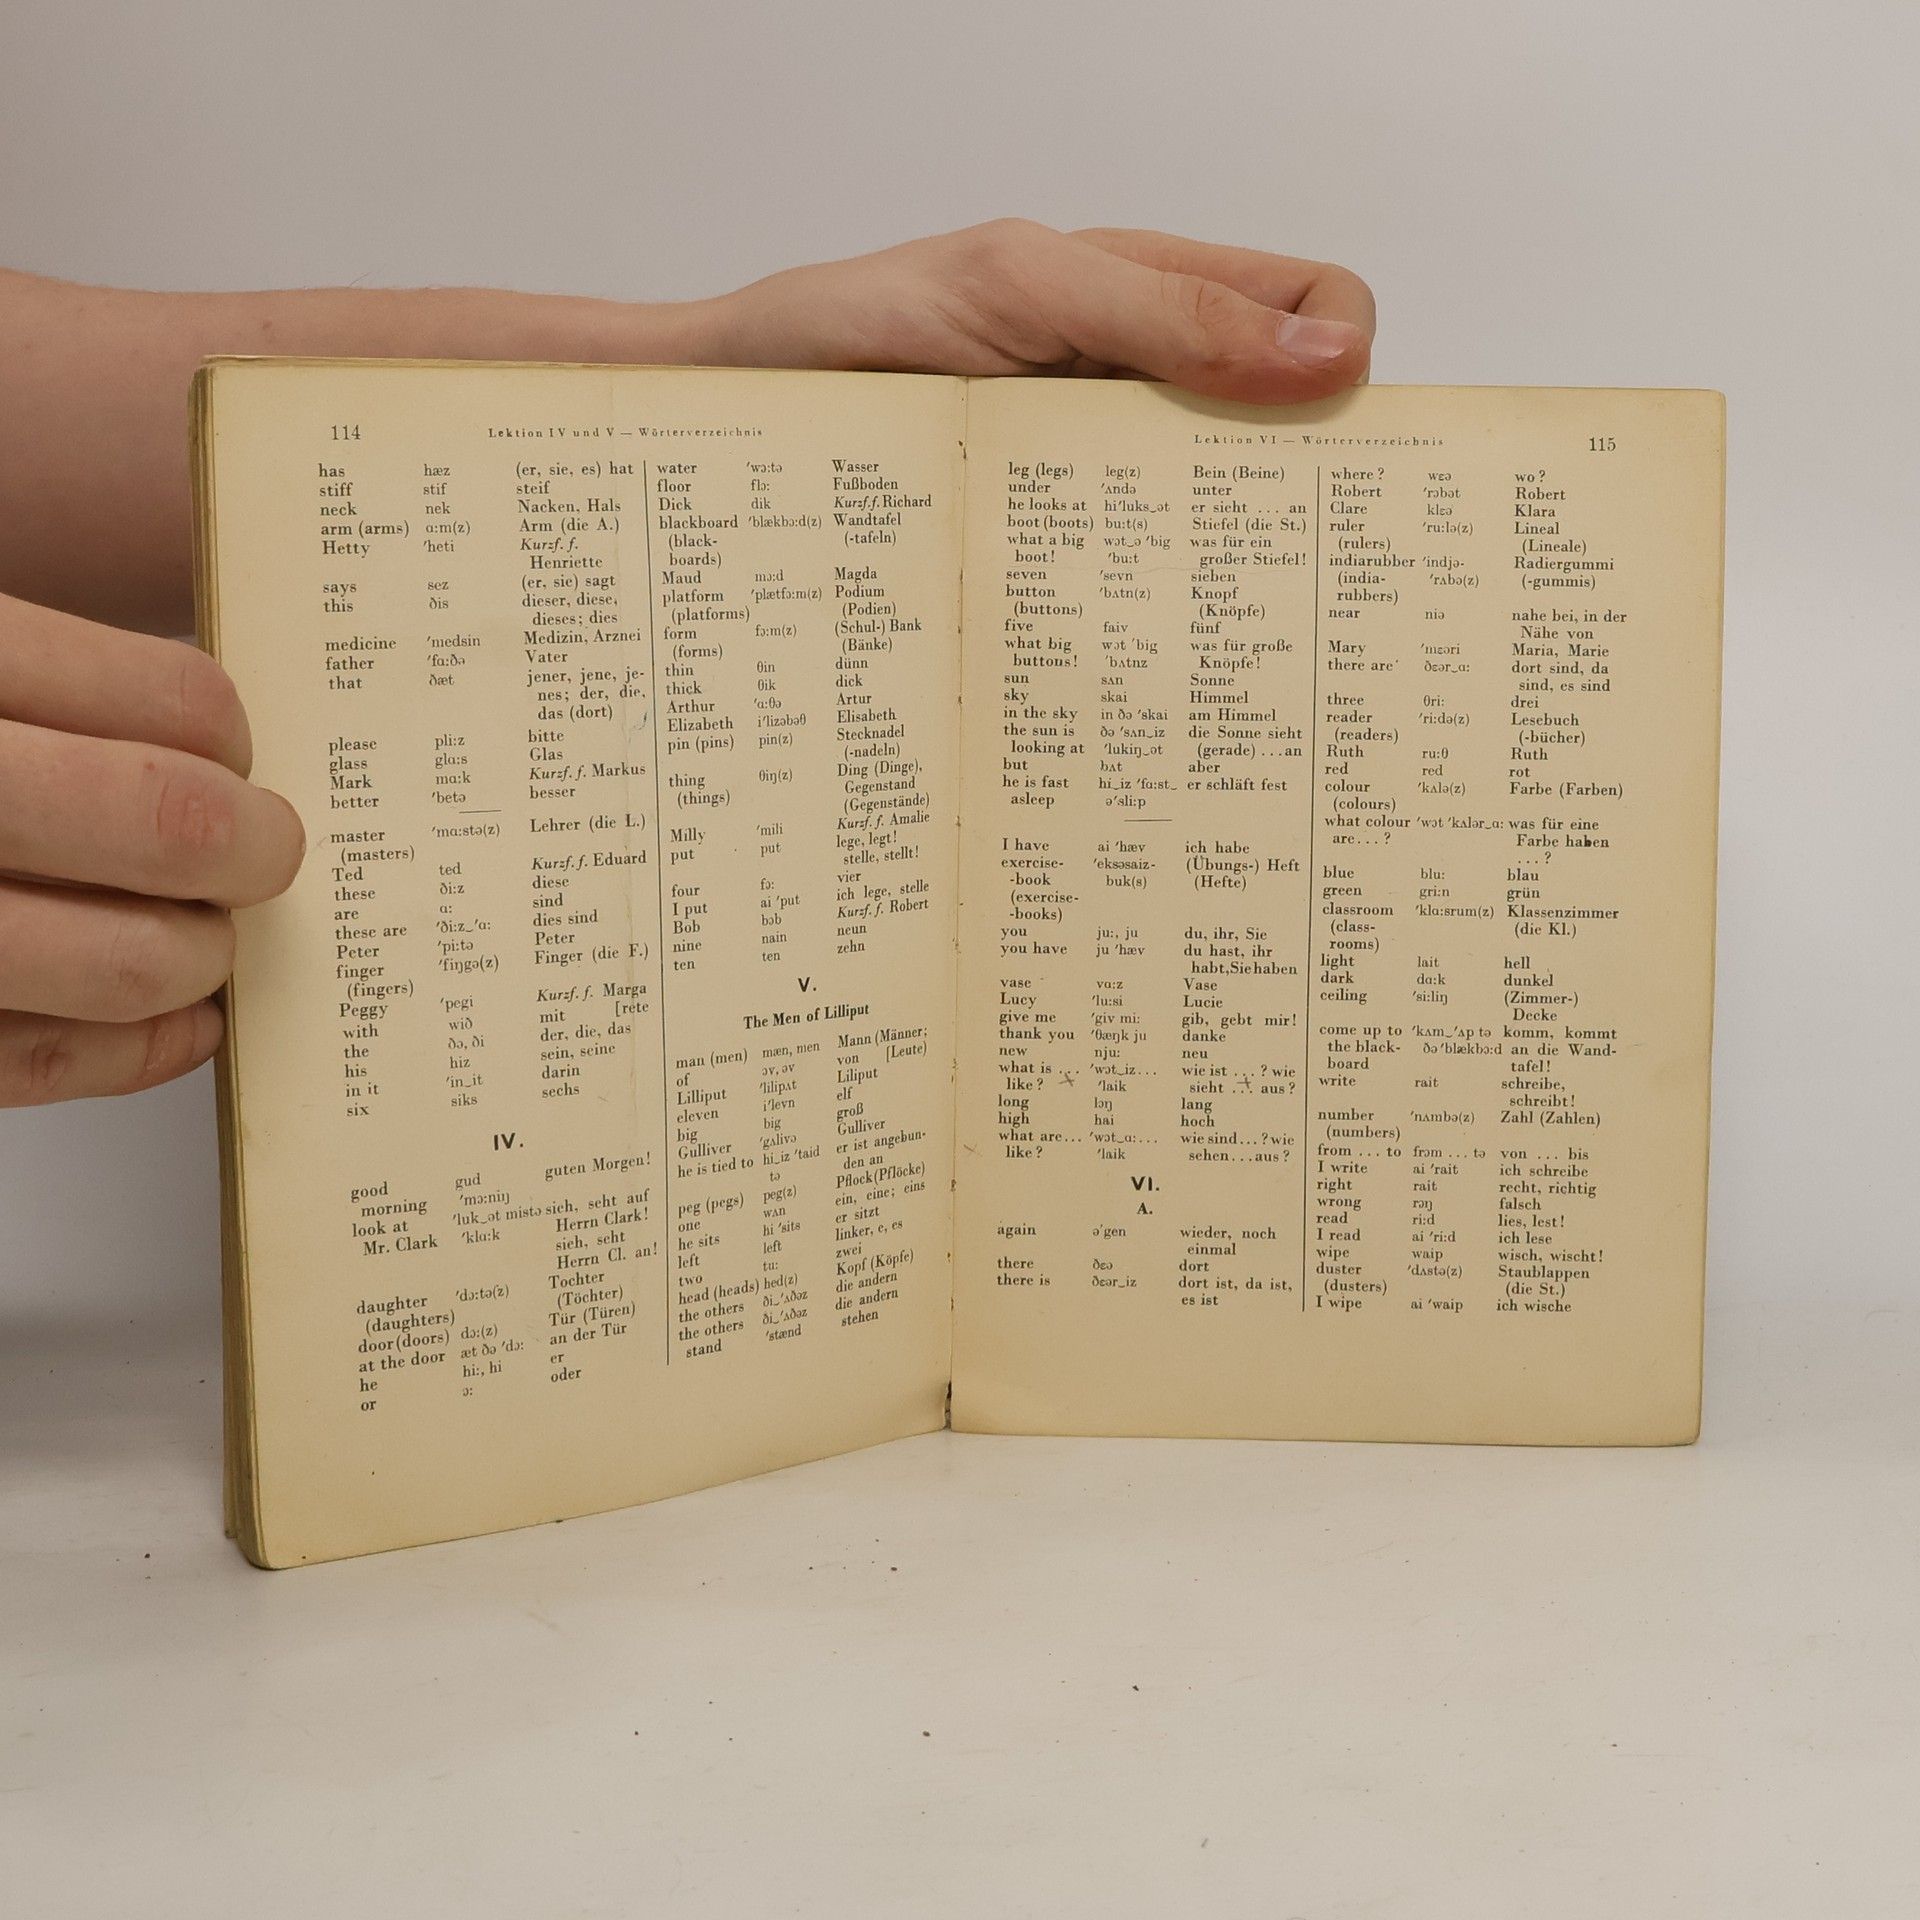 114
Lektion IV und V — Wörterverzeichnis
has hæz (er, sie, es) hat
stiff stif steif
neck nek Nacken, Hals
arm (arms) ɑ:m(z) Arm (die A.)
Hetty 'heti Kurzf. f.
Henriette
says sez (er, sie) sagt
this ðis dieser, diese,
dieses; dies
medicine 'medsin Medizin, Arznei
father 'fɑ:ðə Vater
that ðæt jener, jene, je-
nes; der, die,
das (dort)
please pli:z bitte
glass glɑ:s Glas
Mark mɑ:k Kurzf. f. Markus
better 'betə besser
master 'mɑ:stə(z) Lehrer (die L.)
(masters)
Ted ted Kurzf. f. Eduard
these ði:z diese
are ɑ: sind
these are 'ði:z‿'ɑ: dies sind
Peter 'pi:tə Peter
finger 'fiŋgə(z) Finger (die F.)
(fingers)
Peggy 'pegi Kurzf. f. Marga
with wið mit [rete
the ðə, ði der, die, das
his hiz sein, seine
in it 'in‿it darin
six siks sechs
IV.
good gud guten Morgen!
morning 'mɔ:niŋ
look at 'luk‿ət mistə sich, seht auf
Mr. Clark 'klɑ:k Herrn Clark!
sieh, seht
Herrn Cl. an!
daughter 'dɔ:tə(z) Tochter
(daughters) (Töchter)
door (doors) dɔ:(z) Tür (Türen)
at the door æt ðə 'dɔ: an der Tür
he hi:, hi er
or ɔ: oder
water 'wɔ:tə Wasser
floor flɔ: Fußboden
Dick dik Kurzf. f. Richard
blackboard 'blækbɔ:d(z) Wandtafel
(black- (-tafeln)
boards)
Maud mɔ:d Magda
platform 'plætfɔ:m(z) Podium
(platforms) (Podien)
form fɔ:m(z) (Schul-) Bank
(forms) (Bänke)
thin θin dünn
thick θik dick
Arthur 'ɑ:θə Artur
Elizabeth i'lizəbəθ Elisabeth
pin (pins) pin(z) Stecknadel
(-nadeln)
thing θiŋ(z) Ding (Dinge),
(things) Gegenstand
(Gegenstände)
Milly 'mili Kurzf. f. Amalie
put put lege, legt!
stelle, stellt!
four fɔ: vier
I put ai 'put ich lege, stelle
Bob bɔb Kurzf. f. Robert
nine nain neun
ten ten zehn
V.
The Men of Lilliput
man (men) mæn, men Mann (Männer;
of ɔv, əv von [Leute)
Lilliput 'lilipʌt Liliput
eleven i'levn elf
big big groß
Gulliver 'gʌlivə Gulliver
he is tied to hi‿iz 'taid er ist angebun-
tə den an
peg (pegs) peg(z) Pflock (Pflöcke)
one wʌn ein, eine; eins
he sits hi 'sits er sitzt
left left linker, e, es
two tu: zwei
head (heads) hed(z) Kopf (Köpfe)
the others ði‿'ʌðəz die andern
the others ði‿'ʌðəz die andern
stand 'stænd stehen
Lektion VI — Wörterverzeichnis
115
leg (legs) leg(z) Bein (Beine)
under 'ʌndə unter
he looks at hi'luks‿ət er sieht ... an
boot (boots) bu:t(s) Stiefel (die St.)
what a big wɔt‿ə 'big was für ein
boot! 'bu:t großer Stiefel!
seven 'sevn sieben
button 'bʌtn(z) Knopf
(buttons) (Knöpfe)
five faiv fünf
what big wɔt 'big was für große
buttons! 'bʌtnz Knöpfe!
sun sʌn Sonne
sky skai Himmel
in the sky in ðə 'skai am Himmel
the sun is ðə 'sʌn‿iz die Sonne sieht
looking at 'lukiŋ‿ət (gerade) ... an
but bʌt aber
he is fast hi‿iz 'fɑ:st‿ er schläft fest
asleep ə'sli:p
I have ai 'hæv ich habe
exercise- 'eksəsaiz- (Übungs-) Heft
-book buk(s) (Hefte)
(exercise-
-books)
you ju:, ju du, ihr, Sie
you have ju 'hæv du hast, ihr
habt, Sie haben
vase vɑ:z Vase
Lucy 'lu:si Lucie
give me 'giv mi: gib, gebt mir!
thank you 'θæŋk ju danke
new nju: neu
what is ... 'wɔt‿iz... wie ist ...? wie
like? 'laik sieht ... aus?
long lɔŋ lang
high hai hoch
what are... 'wɔt‿ɑ:... wie sind...? wie
like? 'laik sehen...aus?
VI.
A.
again ə'gen wieder, noch
einmal
there ðɛə dort
there is ðɛər‿iz dort ist, da ist,
es ist
where? wɛə wo?
Robert 'rɔbət Robert
Clare klɛə Klara
ruler 'ru:lə(z) Lineal
(rulers) (Lineale)
indiarubber 'indjə- Radiergummi
(india- 'rʌbə(z) (-gummis)
rubbers)
near niə nahe bei, in der
Nähe von
Mary 'mɛəri Maria, Marie
there are ðɛər‿ɑ: dort sind, da
sind, es sind
three θri: drei
reader 'ri:də(z) Lesebuch
(readers) (-bücher)
Ruth ru:θ Ruth
red red rot
colour 'kʌlə(z) Farbe (Farben)
(colours)
what colour 'wɔt 'kʌlər‿ɑ: was für eine
are...? Farbe haben
...?
blue blu: blau
green gri:n grün
classroom 'klɑ:srum(z) Klassenzimmer
(class- (die Kl.)
rooms)
light lait hell
dark dɑ:k dunkel
ceiling 'si:liŋ (Zimmer-)
Decke
come up to 'kʌm‿'ʌp tə komm, kommt
the black- ðə 'blækbɔ:d an die Wand-
board tafel!
write rait schreibe,
schreibt!
number 'nʌmbə(z) Zahl (Zahlen)
(numbers)
from ... to frɔm ... tə von ... bis
I write ai 'rait ich schreibe
right rait recht, richtig
wrong rɔŋ falsch
read ri:d lies, lest!
I read ai 'ri:d ich lese
wipe waip wisch, wischt!
duster 'dʌstə(z) Staublappen
(dusters) (die St.)
I wipe ai 'waip ich wische